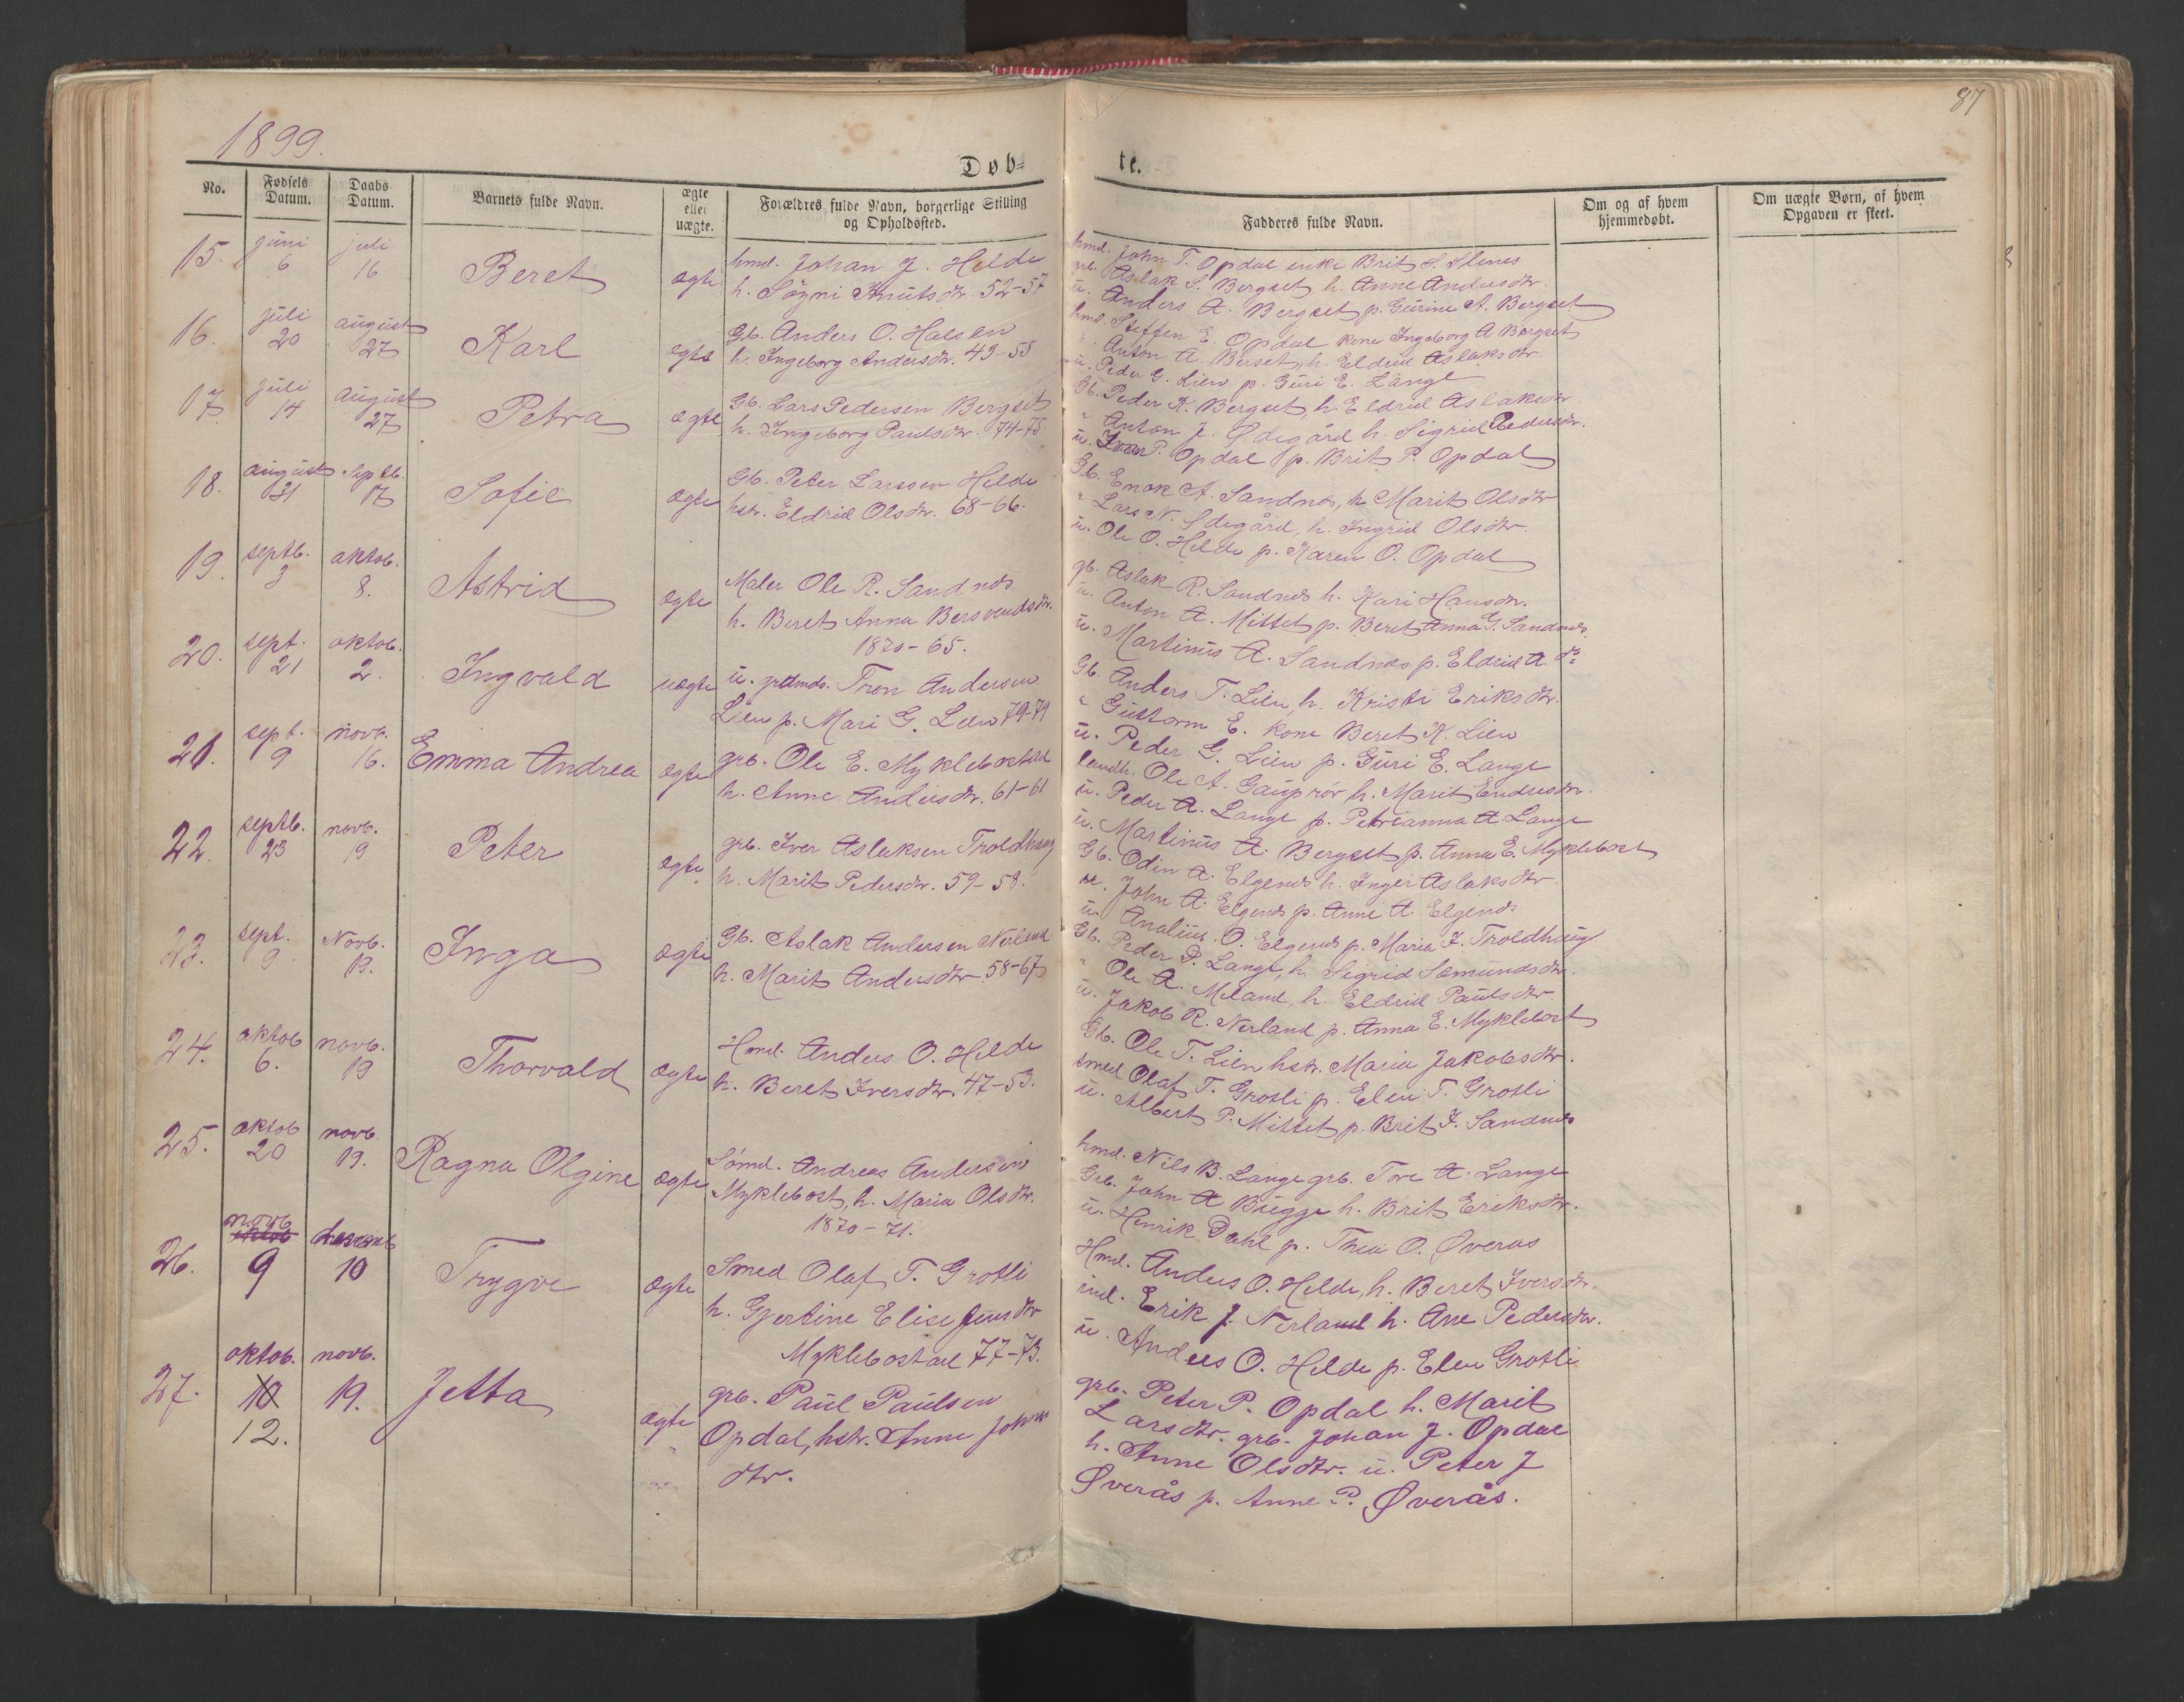 87
1899.
Døb-
te.
No.
Fødsels Datum.
Daabs Datum.
Barnets fulde Navn.
ægte eller uægte.
Forældres fulde Navn, borgerlige Stilling og Opholdssted.
Fadderes fulde Navn.
Om og af hvem hjemmedøbt.
Om uægte Børn, af hvem Opgaven er skeet.
15. juni 6 juli 16 Beret ægte
hmd. Johan J. Helde
h. Søgni Knutsdtr. 52-57
hmd. John T. Opdal enke Brit S.
grb. Aslak S. Bergset h. Anne Andersdtr.
u. Anders A. Bergset p. Gurine A. Bergset
16. juli 20 august 27 Karl ægte
Gb. Anders O. Halsen
h. Ingeborg Andersdtr. 49-55
hmd. Steffen E. Opdal kone Ingeborg A Bergset
" Anton A. Berset, h. Eldrid Aslaksdtr.
u. Peder G. Lien p. Guri E. Lange
17. juli 14 august 27 Petra ægte
Gb. Lars Pedersen Bergset
h. Ingeborg Paulsdtr. 74-75
Gb. Peder K. Bergset, h. Eldrid Aslaksdtr
" Anton J. Ødegård h. Sigrid Pedersdtr.
u. Iver P. Opdal p. Brit P. Opdal
18. august 31 septb. 17 Sofie ægte
Gb. Peter Larssen Helde
hstr. Eldrid Olsdtr. 68-66.
Gb. Enok A. Sandnes, h. Marit Olsdtr
" Lars N. Ødegård, h. Ingrid Olsdtr.
u. Ole O. Helde p. Karen O. Opdal
19. septb. 3 oktob. 8. Astrid ægte
Maler Ole R. Sandnes
h. Beret Anna Bersvendsdtr.
1870-65.
gb. Aslak R. Sandnes h. Kari Hansdtr.
u. Anton A. Mittet p. Beret Anna G. Sandnes.
u. Martinus A. Sandnes p. Eldrid A. do
20. sept. 21 oktob. 2. Ingvald uægte
u. grdmds. Tron Andersen
Lien p. Mari G. Lien 79-79
Gb. Anders T. Lien, h. Kristi Eriksdtr.
" Guttorm E. kone Beret K. Lien
u. Peder G. Lien p. Guri E. Lange
21. sept. 9 novbr. 16. Emma Andrea ægte
grb. Ole E. Myklebostad
h. Anne Andersdtr. 61-61
landh. Ole A. Gauprør h. Marit Endresdtr.
u. Peder A. Lange p. Petrianna A Lange
u. Martinus A. Bergset p. Anna E. Myklebost
22. septb. 23 novb. 19 Peter ægte
grb. Iver Aslaksen Troldhaug
h. Marit Pedersdtr. 59-58.
Gb. Odin A. Elgenes h. Inger Aslaksdtr.
u. John A. Elgenes p. Anne A. Elgenes
u. Analius. O. Elgenes p. Maria I. Troldhaug
23. sept. 9 Novb. 19. Inga ægte
Gb. Aslak Andersen Nerland
h. Marit Andersdtr. 58-67
Gb. Peder P. Lange, h. Sigrid Sæmundsdtr.
" Ole A. Meland, h. Eldrid Paulsdtr.
u. Jakob R. Nerland p. Anna E. Myklebost
24. oktob 6. novb. 19 Thorvald ægte
Hmd. Anders O. Helde
h. Beret Iversdtr. 47-53.
Gb. Ole T. Lien hstr. Maria Jakobsdtr.
smed Olaf T. Grotli p. Elen T. Grotli
u. Albert P. Mittet p. Brit I. Sandnes
25. oktob 20 novb. 19. Ragna Olgine ægte
Sømd. Andreas Andersen
Myklebost, h. Maria Olsdtr.
1870-71.
hmd. Nils B. Lange grb. Tore A. Lange
Grb. John A Bugge h. Brit Eriksdtr.
u. Henrik Dahl p. Thea O. Øveraas
26. novb oktob 9 desemb 10 Trygve ægte
Smed Olaf T. Grotli
h. Gjertine Elise Jensdtr
Myklebostad 77-73.
Hmd. Anders O. Helde, h. Beret Iversdtr.
ind. Erik J. Nerland h. Ane Pedersdtr.
u. Anders O. Helde p. Elen Grotli
27. oktob. 10 12. novb. 19. Jetta ægte
grb. Paul Paulsen
Opdal, hstr. Anne Johns
dtr.
grb. Peter P. Opdal h. Marit
Larsdtr. grb. Johan J. Opdal
h. Anne Olsdtr. u. Peter J
Øverås p. Anne P. Øverås.